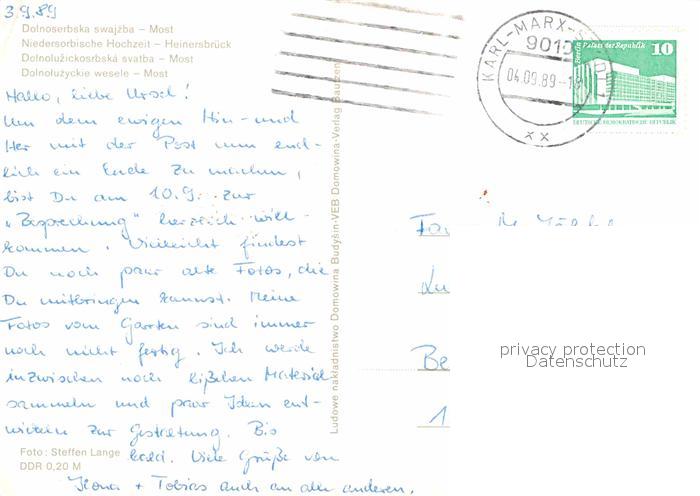 3.9.89
Dolnoserbska swajźba – Most
Niedersorbische Hochzeit – Heinersbrück
Dolnolužickosrbská svatba – Most
Dolnołużyckie wesele – Most
Hallo, liebe Ursel!
Um dem ewigen Hin- und
Her mit der Post nun end-
lich ein Ende zu machen,
bist Du am 10.9. zur
„Besprechung" herzlich will-
kommen. Vielleicht findest
Du noch paar alte Fotos, die
Du mitbringen kannst. Meine
Fotos vom Garten sind immer
noch nicht fertig. Ich werde
inzwischen noch bißchen Material
sammeln und paar Ideen ent-
wickeln zur Gestaltung. Bis
bald. Viele Grüße von
Ilona + Tobias auch an alle anderen.
Foto: Steffen Lange
DDR 0,20 M
Ludowe nakładnistwo Domowina Budyšin · VEB Domowina-Verlag Bautzen
KARL-MARX-STADT
9010
04.09.89
xx
Berlin Palast der Republik
10
DEUTSCHE DEMOKRATISCHE REPUBLIK
Fa
Be
1
privacy protection
Datenschutz